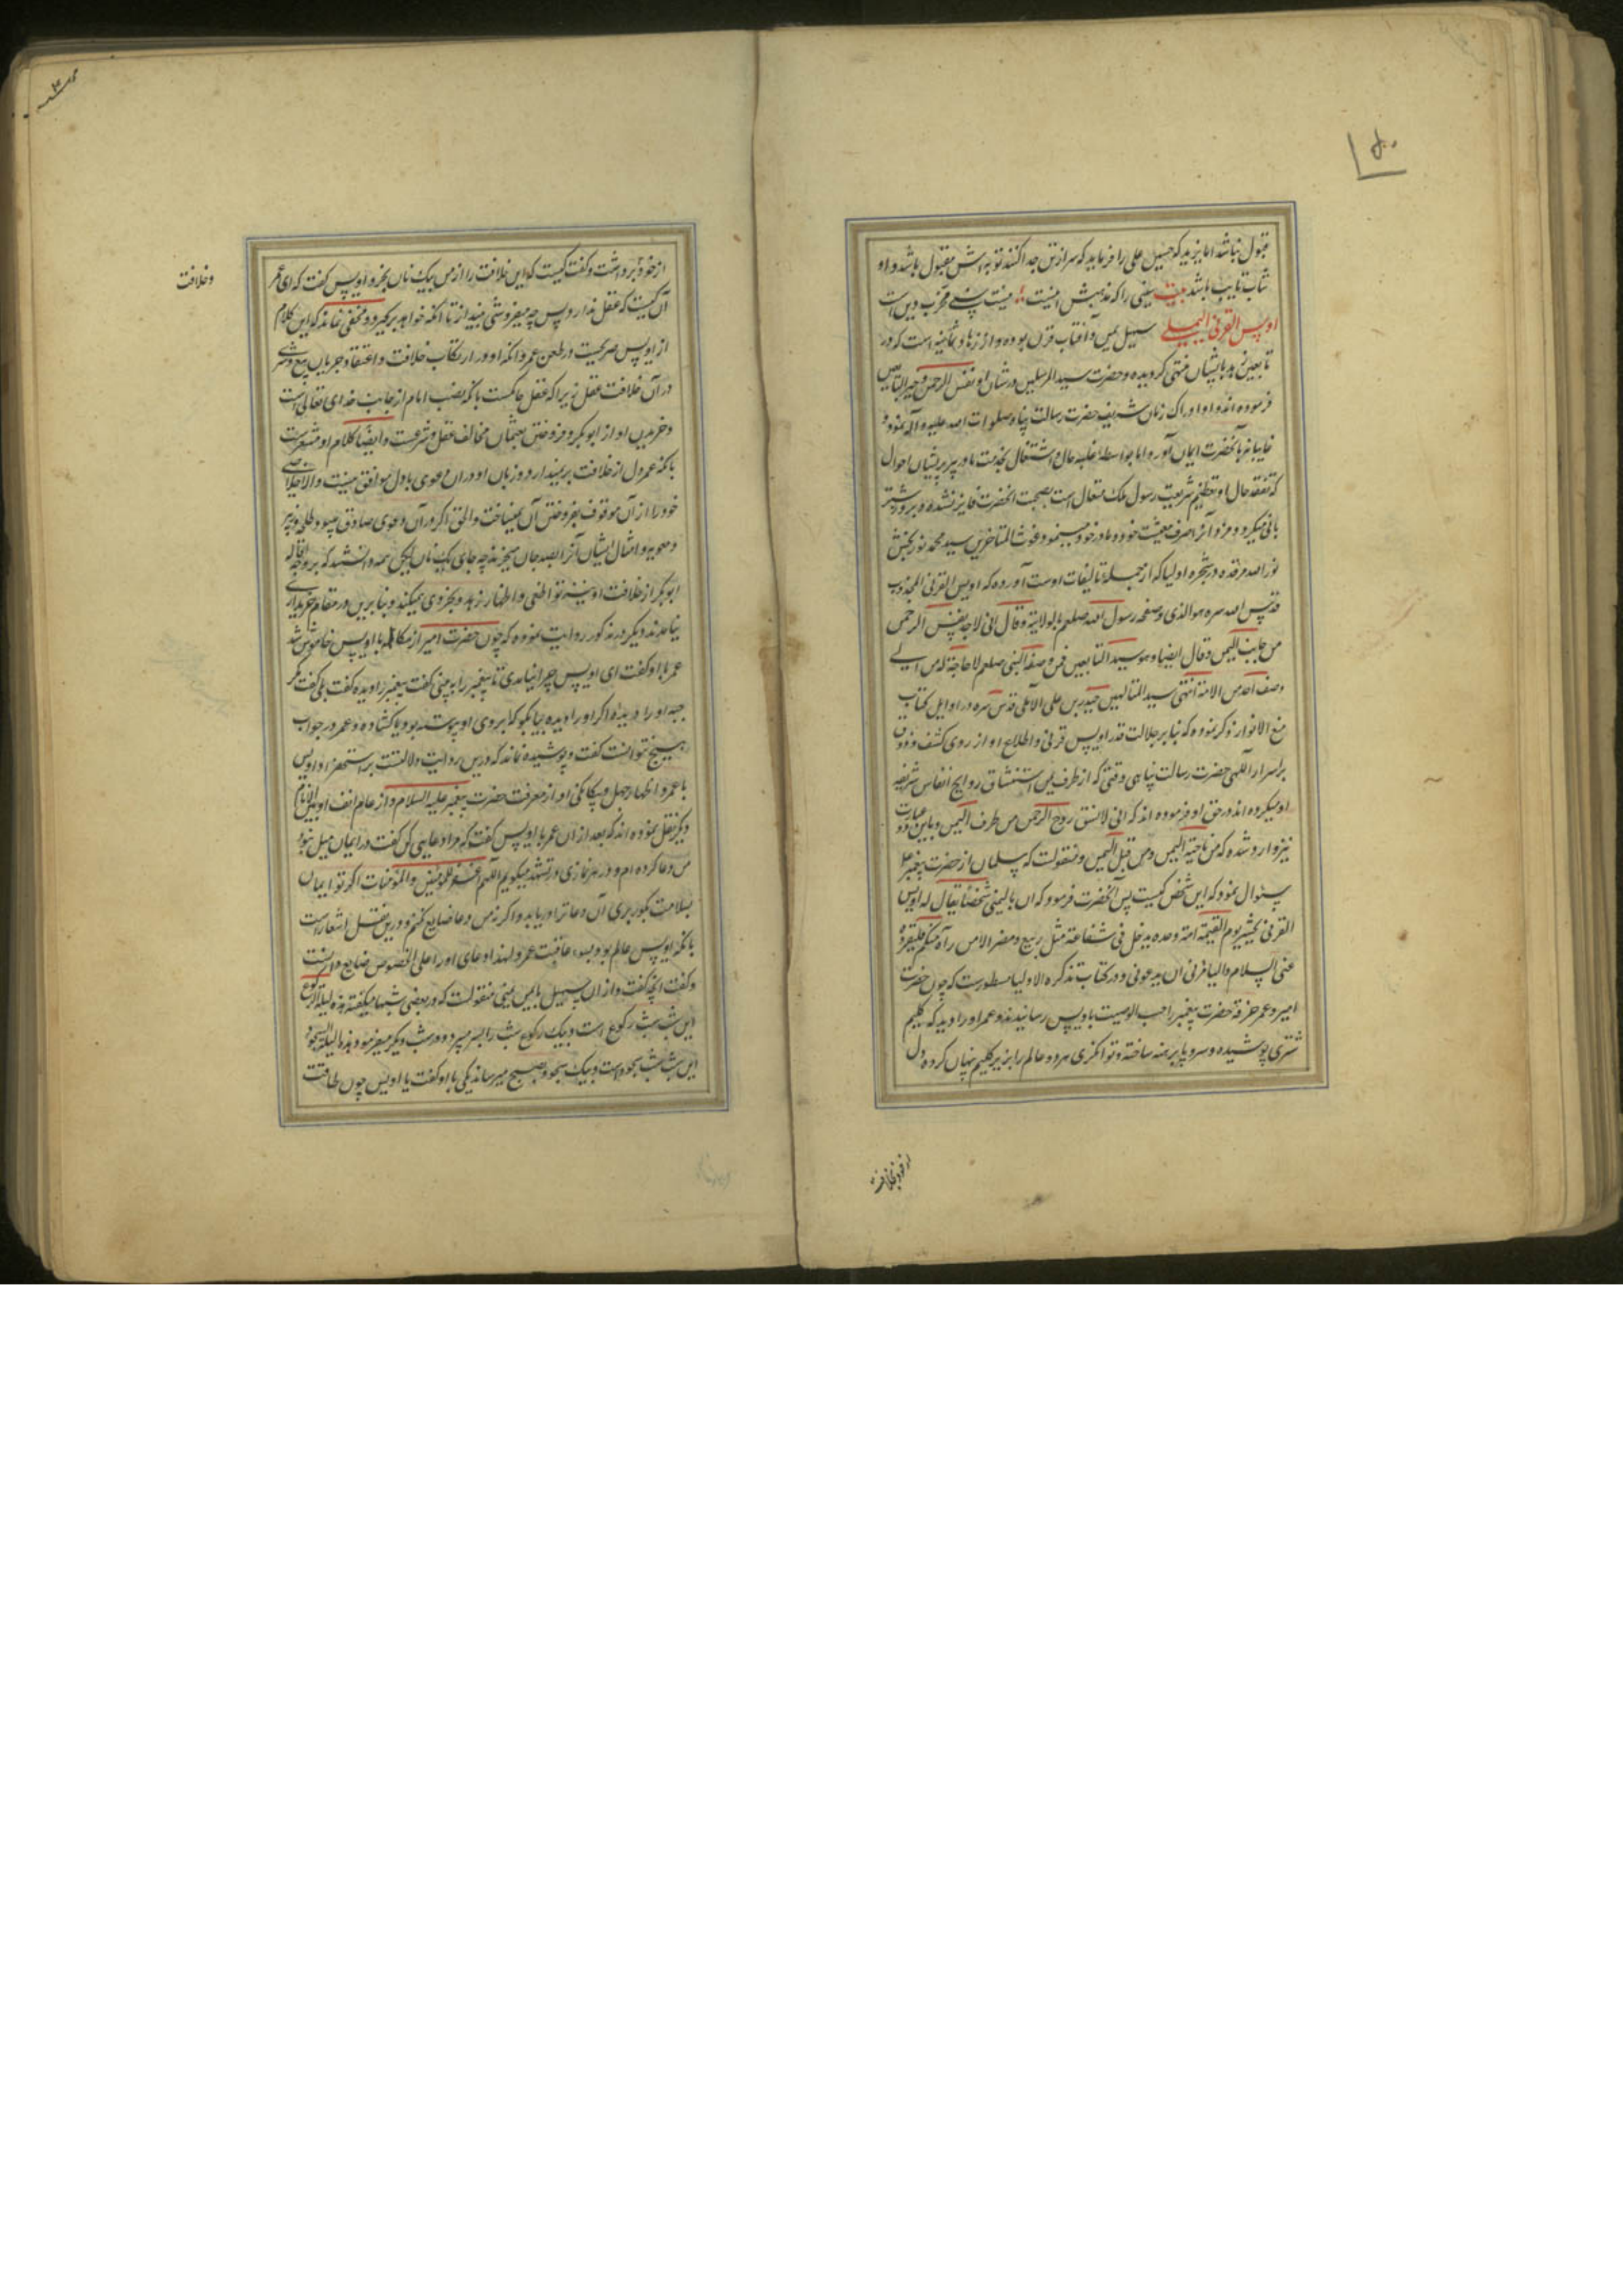 قبول نباشد اما یزید که حسین علی را فرماید که سر از تن جدا کنند توبه اش مقبول باشد و او
شاب تایب باشد بیت سنی را که مذهبش اینست سنیست مخرب دین است
اویس القرنی الیمنی سهیل یمن و آفتاب قرن بوده و از زهاد ثمانیه است که در
تابعین زهد بایشان منتهی گردیده و حضرت سید المرسلین در شان او نفس الرحمن و خیر التابعین
فرموده اند و او ادراک زمان شریف حضرت رسالت پناه صلوات الله علیه و آله نموده
غایبانه بآنحضرت ایمان آورد اما بواسطه غلبه حال و اشتغال بخدمت مادر پیر پریشان احوال
که تفقد حال او تعظیم شریعت رسول ملک متعال است بصحبت آنحضرت فایز نشده و بروز شتر
بانی میکرد و مزد آنرا صرف معیشت خود و مادر خود مینمود غوث المتاخرین سید محمد نوربخش
نور الله مرقده در شجره اولیا که از جمله تالیفات اوست آورده که اویس القرنی المجذوب
قدس الله سره هو الذی وصفه رسول الله صلعم بالولایة و قال انی لاجد نفس الرحمن
من جانب الیمن و قال ایضا و هو سید التابعین فمن وصفه النبی صلعم لا حاجة له من الی
وصف احد من الامة انتهی سید المتالهین حیدر بن علی الآملی قدس سره در اوایل کتاب
منبع الانوار ذکر نموده که بنا بر جلالت قدر اویس قرنی و اطلاع او از روی کشف و ذوق
بر اسرار آلهی حضرت رسالت پناهی وقتی که از طرف یمن استنشاق روایح انفاس شریفه
او میکرده اند در حق او فرموده اند که انی لانشق روح الرحمن من طرف الیمن و باین عبارت
نیز وارد شده که من ناحیة الیمن و من قبل الیمن و منقولست که سلمان از حضرت پیغمبر
سؤال نمود که این شخص کیست پس آنحضرت فرمود که ان بالیمن شخصا یقال له اویس
القرنی یحشر یوم القیمة امة وحده یدخل فی شفاعته مثل ربیع و مضر الا من رآه منکم فلیقرؤه
عنی السلام و لیامرنی ان یدعونی و در کتاب تذکرة الاولیا مسطورست که چون حضرت
امیر و عمر خرقه حضرت پیغمبر را حسب الوصیت باویس رسانیدند و عمر او را دید که گلیم
شتری پوشیده و سر و پا برهنه ساخته و توانگری هر دو عالم را بزیر گلیم پنهان کرده دل
از خود بخلافت
از خود برداشت و گفت کیست که این خلافت را از من بیک نان بخرد اویس گفت که ای عمر
آن کیست که عقل ندارد پس چه میفروشی بینداز تا آنکه خواهد برگیرد و مخفی نماند که این کلام
از اویس صریحست در طعن عمر و آنکه او در ارتکاب خلافت و اعتقاد جریان بیع و شری
در آن خلافت عقل زیرا که عقل حاکمست بآنکه نصب امام از جانب خدای تعالی است
و خریدن او از ابوبکر و فروختن بعثمان مخالف عقل و شرعست و ایضا کلام او مشعرست
بآنکه عمر دل از خلافت بر نمیدارد و زبان او در آن دعوی با دل موافق نیست و الا خلاصی
خود را از آن موقوف بفروختن آن نمیساخت و الحق اگر در آن دعوی صادق میبود طلحه و زبیر
و معویه و امثال ایشان آنرا بصد جان میخریدند چه جای یک نان لیکن همه دانستند که بر وجه اقاله
ابوبکر از خلافت او نیز تواطئی و اظهار زهد و بخردی میکند و بنا برین در مقام خریداری
نیامدند و دیگر در تذکره روایت نموده که چون حضرت امیر از مکالمه با اویس خاموش شد
عمر با او گفت ای اویس چرا نیامدی تا پیغمبر را به بینی گفت پیغمبر را دیده گفت بلی گفت مگر
جبه او را دیده اگر او را دیده بیا بگو که ابروی او پیوسته بود یا گشاده و عمر در جواب
هیچ نتوانست گفت و پوشیده نماند که درین روایت دلالتست بر استحقار اویس
با عمر و اظهار جهل و بیگانگی او از معرفت حضرت پیغمبر علیه السلام و از عام الف او
دیگر نقل نموده اند که بعد از آن عمر با اویس گفت که مرا دعایی کن گفت در ایمان میل نبود
من دعا کرده ام و در هر نمازی در تشهد میگویم اللهم اغفر للمؤمنین و المؤمنات اگر تو ایمان
بسلامت بگور بری آن دعا ترا دریابد و اگر نه من دعا ضایع نکنم و درین نقل اشعار است
بآنکه اویس عالم بود بسوء عاقبت عمر و لهذا دعای او را علی الخصوص ضایع دانست
و گفت آنچه گفت و از آن سهیل یمنی منقولست که در بعضی شبها میگفت هذه لیلة الرکوع
این شب شب رکوع است و بیک رکوع شب را بسر میبرد و در شب دیگر میفرمود هذه لیلة السجود
این شب شب سجود است و بیک سجود بصبح میرساند یکی با او گفت یا اویس چون طاقت
و خلافت